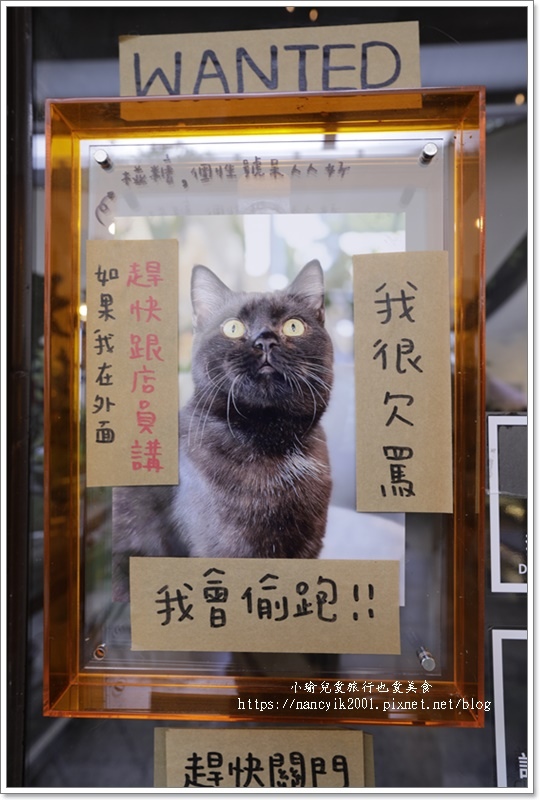 WANTED
如果我在外面
趕快跟店員講
我很欠罵
我會偷跑!!
小瑜兒愛旅行也愛美食
https://nancyik2001.pixnet.net/blog
趕快關門